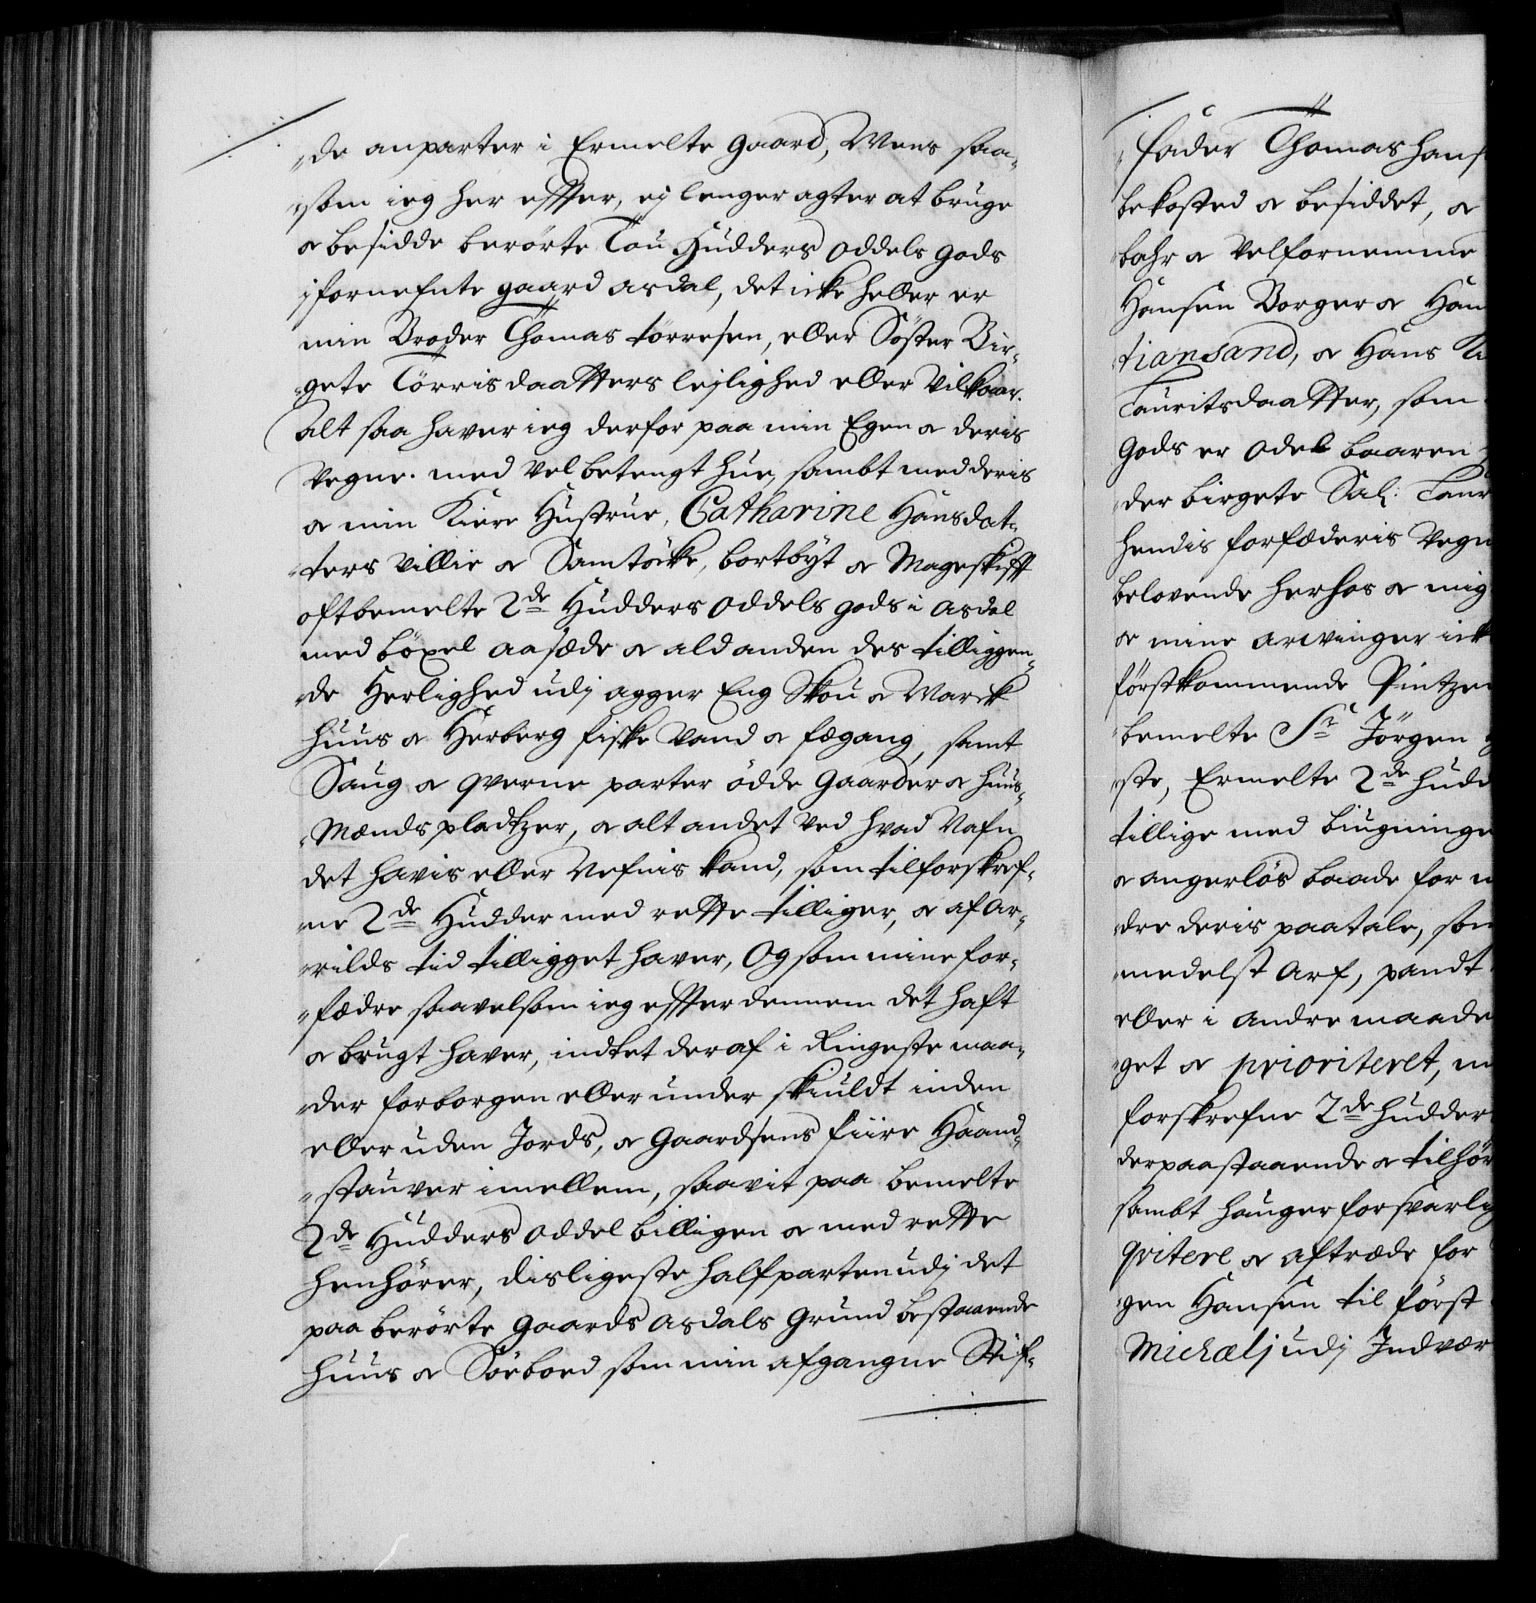 de anparter i Ermelte gaard, Mens saa-
som ieg her effter, ej lenger agter at bruge
& besidde berørte Tou Hudders oddels gods
j fornefnte gaard asdal, det icke heller er
min Broder Thomas törresen, eller Söster Bir-
gete Törrisdaatters lejlighed eller Vilkaar.
Alt saa haver ieg derfor paa min Egen & deris
Vegne. med vel betengt hue, sambt med deris
& min Kiere Hustrue, Catharine Hansdat-
ters villie & Samtöcke, bortbÿt & Mageskifft
oftbemelte 2de Hudders oddels gods i asdal
med böxel aasæde & ald anden des tilliggen-
de Herlighed udj agger Eng Skou & Marck
huus & Herberg fiske vand & fægang, samt
Saug & qverne parter ödde gaarder & huus-
Mænds pladtzer, & alt andet ved hvad Nafn
det havis eller Nefnis kand, som til forskref-
ne 2de Hudder med rette tilliger, & af Ar-
rilds tid tilligget haver, Og som mine for-
fædre saavelsom ieg effter dennem det haft
& brugt haver, indtet deraf i Ringeste maa-
der forborgen eller under skiuldt inden
eller uden Jords, & gaardsens fiire Haand-
stauver imellem, saavit paa bemelte
2de Hudders oddel billigen & med rette
henhörer, disligeste halfparten udj det
paa berørte gaards asdals grund bestaaende
huus & Söeboed som min afgangne Stif-
fader Thomas Hans
bekosted & besiddet, &
bahr & velfornemme
Hansen Borger & Han
tiansand, & Hans
Lauritsdaatter, som
gods er odel baaren
der birgete Sal: Laur
hendis forfæderis Vegn
belovende herhos & mig
& mine arvinger ick
förstkommende Pintze
bemelte Sr Jörgen
ste, Ermelte 2de hud
tillige med biugninge
& angerlös baade for
dre deris paatale, som
medelst arf, pandt
eller i andre maade
get & prioriteret,
forskrefne 2de Hudder
derpaastaaende & tilhör
sambt hauger forsvarlig
qvitere & aftræde for
gen Hansen til först
Michælj udj Indvær